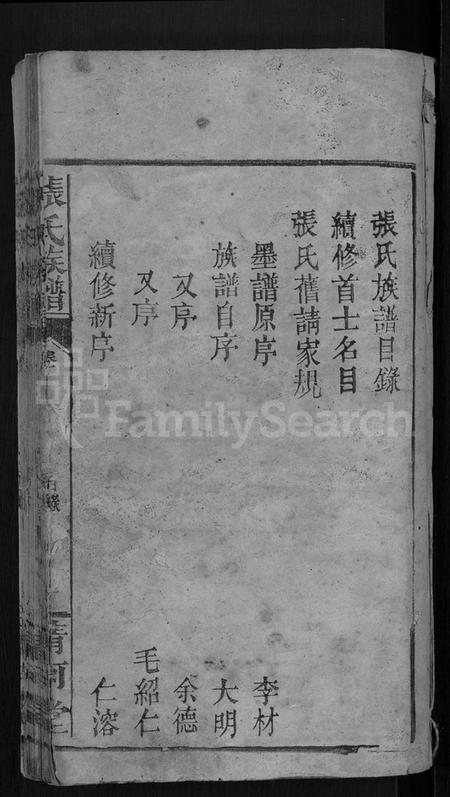 張氏族譜目錄
續修首士名目
張氏舊請家規
墨譜原序 李材
族譜自序 大明
又序 余德
又序 毛紹仁
續修新序 仁溶
張氏族譜
卷
目錄
清河堂
FamilySearch